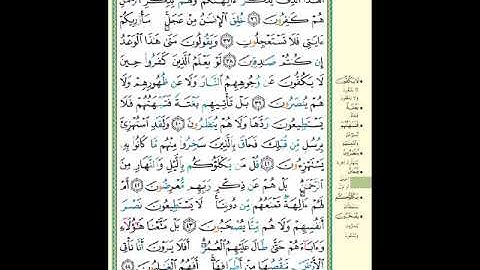 أَهَـٰذَا ٱلَّذِى يَذْكُرُ ءَالِهَتَكُمْ وَهُم بِذِكْرِ ٱلرَّحْمَـٰنِ
هُمْ كَـٰفِرُونَ ٣٦ خُلِقَ ٱلْإِنسَـٰنُ مِنْ عَجَلٍ سَأُو۟رِيكُمْ
ءَايَـٰتِى فَلَا تَسْتَعْجِلُونِ ٣٧ وَيَقُولُونَ مَتَىٰ هَـٰذَا ٱلْوَعْدُ
إِن كُنتُمْ صَـٰدِقِينَ ٣٨ لَوْ يَعْلَمُ ٱلَّذِينَ كَفَرُوا۟ حِينَ
لَا يَكُفُّونَ عَن وُجُوهِهِمُ ٱلنَّارَ وَلَا عَن ظُهُورِهِمْ وَلَا
هُمْ يُنصَرُونَ ٣٩ بَلْ تَأْتِيهِم بَغْتَةً فَتَبْهَتُهُمْ فَلَا
يَسْتَطِيعُونَ رَدَّهَا وَلَا هُمْ يُنظَرُونَ ٤٠ وَلَقَدِ ٱسْتُهْزِئَ
بِرُسُلٍ مِّن قَبْلِكَ فَحَاقَ بِٱلَّذِينَ سَخِرُوا۟ مِنْهُم مَّا كَانُوا۟ بِهِۦ
يَسْتَهْزِءُونَ ٤١ قُلْ مَن يَكْلَؤُكُم بِٱلَّيْلِ وَٱلنَّهَارِ مِنَ
ٱلرَّحْمَـٰنِ بَلْ هُمْ عَن ذِكْرِ رَبِّهِم مُّعْرِضُونَ ٤٢ أَمْ
لَهُمْ ءَالِهَةٌ تَمْنَعُهُم مِّن دُونِنَا لَا يَسْتَطِيعُونَ نَصْرَ
أَنفُسِهِمْ وَلَا هُم مِّنَّا يُصْحَبُونَ ٤٣ بَلْ مَتَّعْنَا هَـٰٓؤُلَآءِ
وَءَابَآءَهُمْ حَتَّىٰ طَالَ عَلَيْهِمُ ٱلْعُمُرُ أَفَلَا يَرَوْنَ أَنَّا نَأْتِى
ٱلْأَرْضَ نَنقُصُهَا مِنْ أَطْرَافِهَآ أَفَهُمُ ٱلْغَـٰلِبُونَ ٤٤